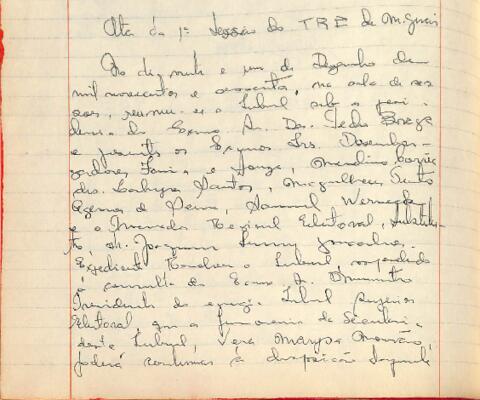 Ata da 1ª sessão do TRE de M. Gerais
Ao dia vinte e um de Dezembro de
mil novecentos e sessenta, na sala de ses
sões, reuniu-se o Tribunal sob a presi-
dencia do Exmo. Sr. Des. Pedro Braga
e presentes os Exmos Srs. Desembar-
gadores Faria e Souza, Marcelino
drs. Santos, Magalhães Pinto
de Paiva, Werneck
e o Procurador Regional Eleitoral, substitu-
to, dr. Joaquim Gonçalves.
Expediente Resolveu o Tribunal, respondendo
à consulta do Exmo. Sr. Ministro
Presidente do Tribunal Superior
Eleitoral, que a funcionaria da Secretaria
deste Tribunal, Vera Marysa Mourão,
poderá continuar à disposição daquele